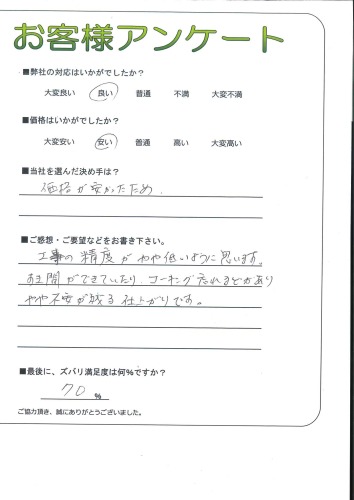 お客様アンケート
■弊社の対応はいかがでしたか？
大変良い 良い 普通 不満 大変不満
■価格はいかがでしたか？
大変安い 安い 普通 高い 大変高い
■当社を選んだ決め手は？
価格が安かったため
■ご感想・ご要望などをお書き下さい。
工事の精度がやや低いように思います。
間ができていたり、コーキング忘れなどがあり
やや不安が残る仕上がりです。
■最後に、ズバリ満足度は何％ですか？
70 %
ご協力頂き、誠にありがとうございました。